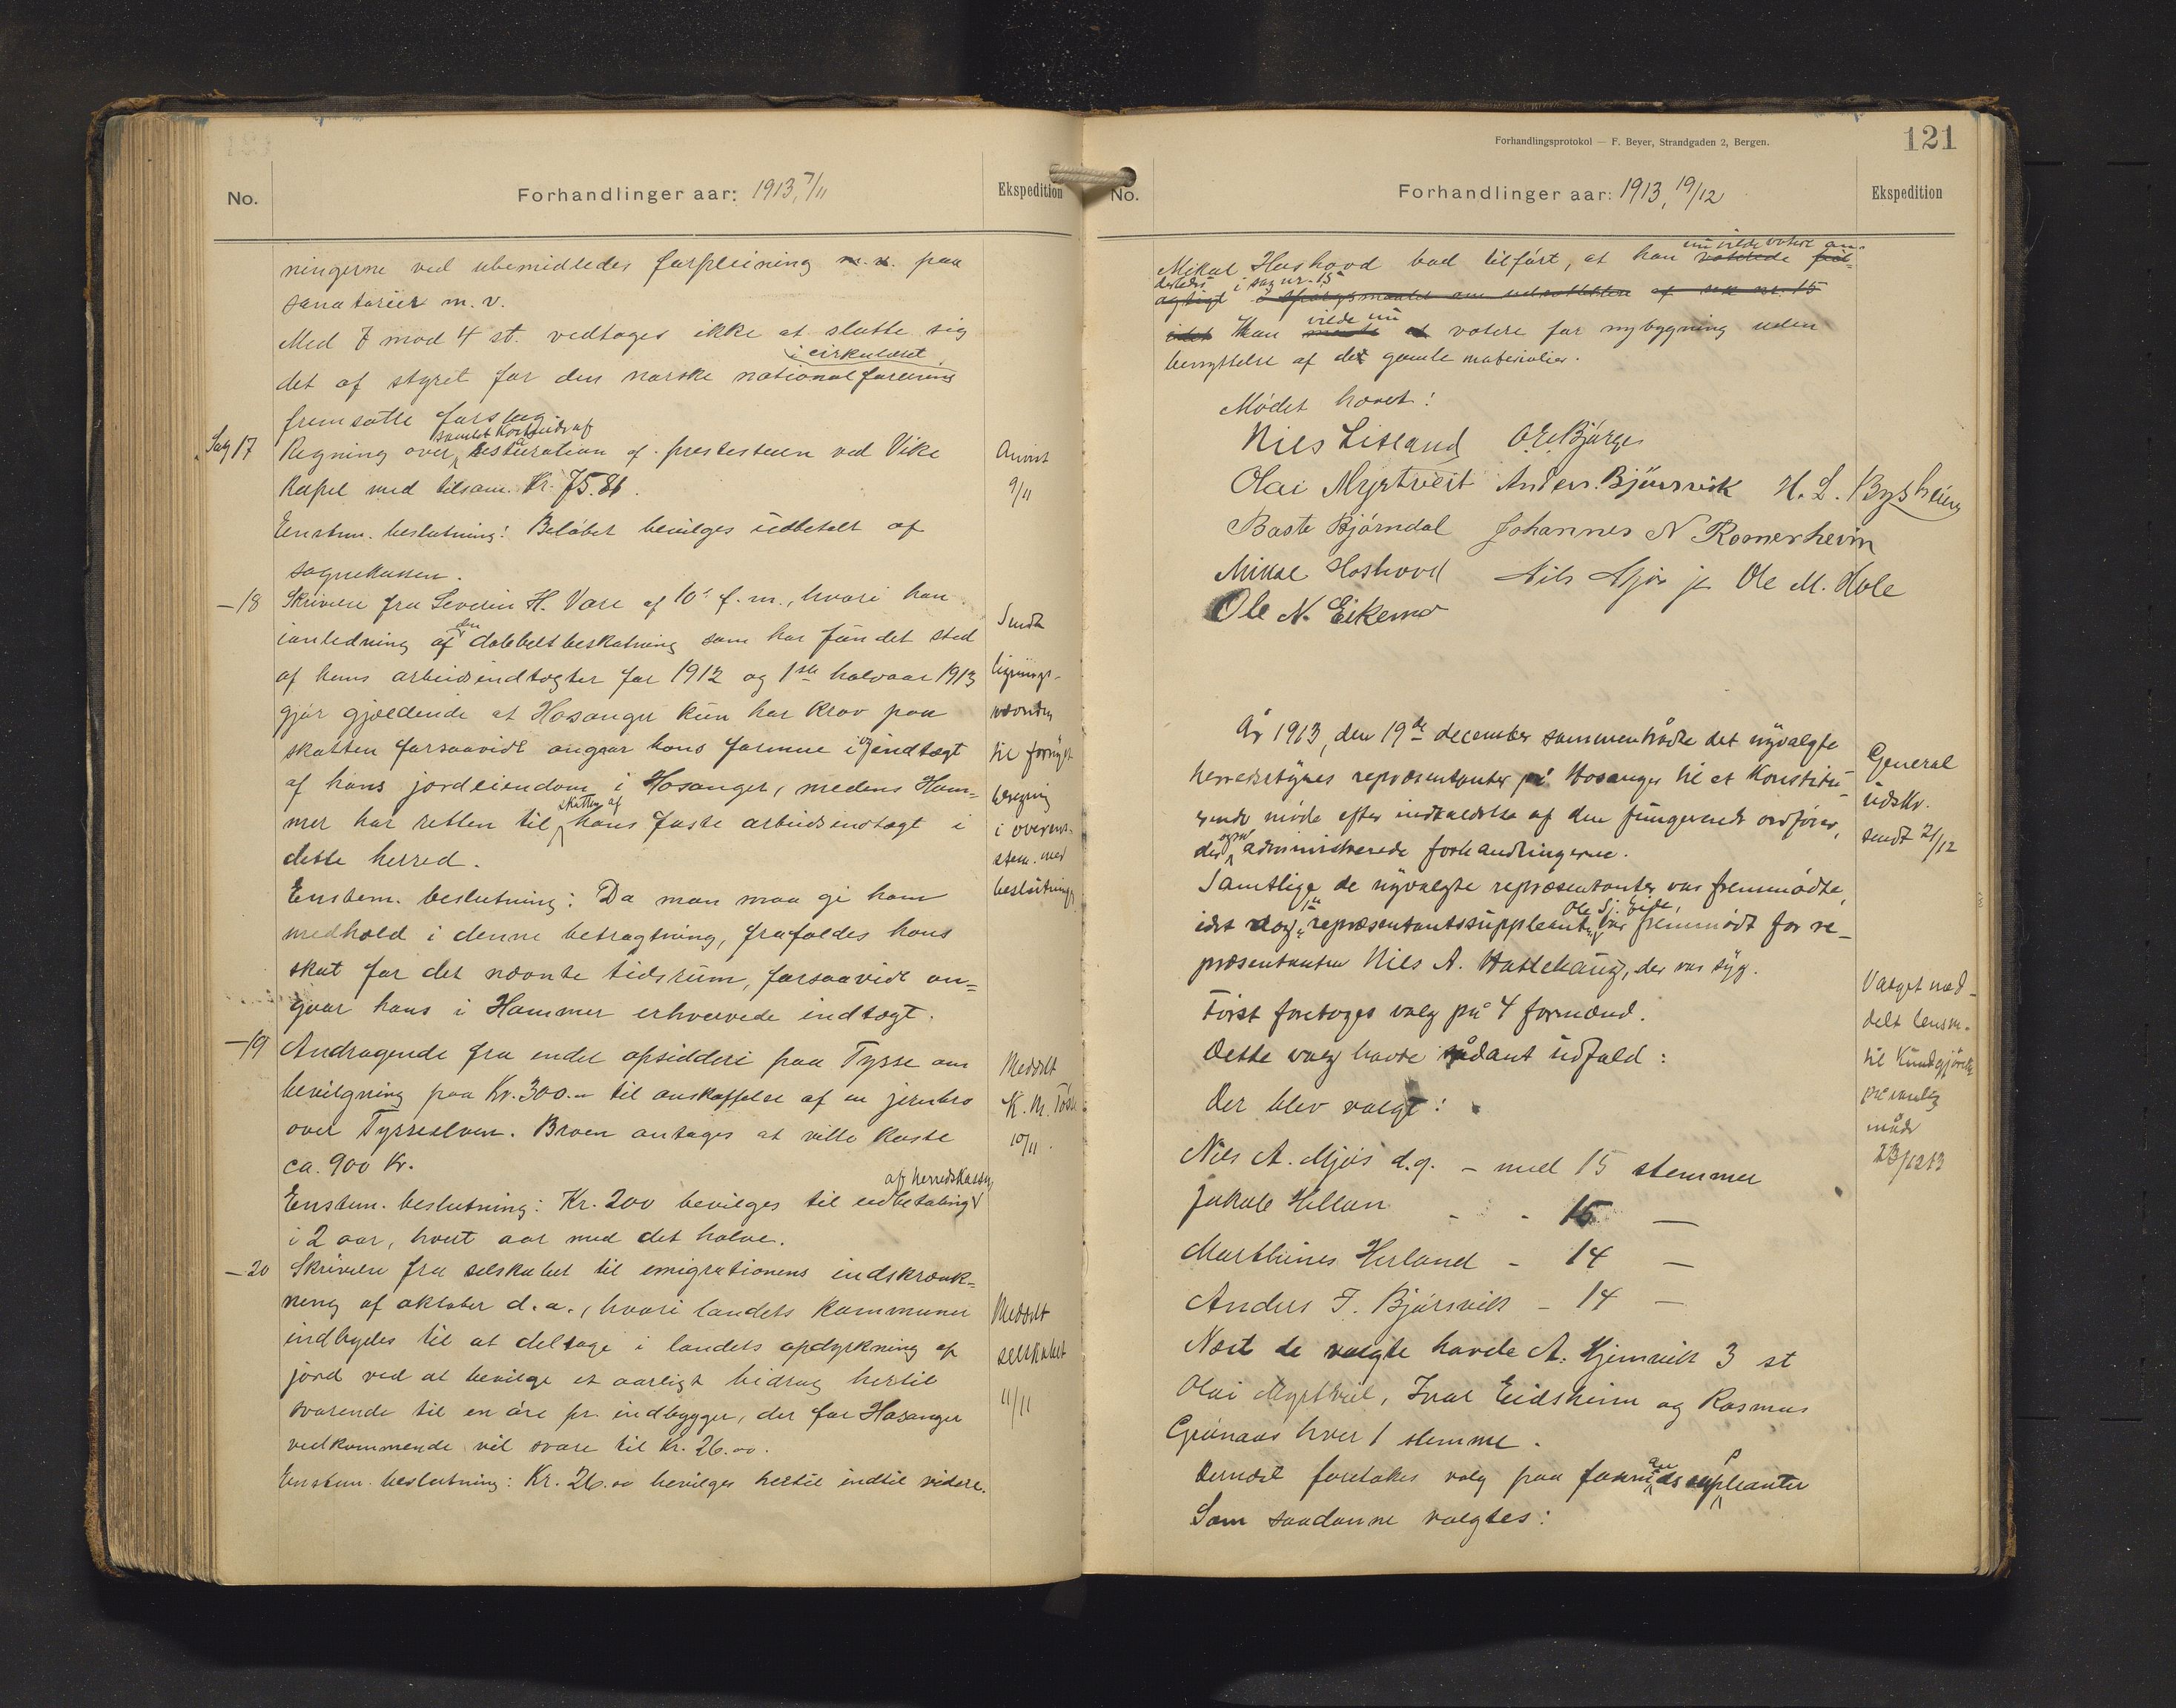 No.
Forhandlinger aar: 1913, 7/11
Ekspedition
ningerne ved ubemidledes forpleining m. v. paa
sanatorier m. v.
Med 7 mod 4 st. vedtages ikke at slutte sig
i cirkulæret
det af styret for den norske nationalforening
fremsatte forslag
samlet
Sag 17 Regning over restaration af prestestuen ved Vike
Kapel med tilsam. Kr. 75.81.
Anvist
9/11
Enstem. beslutning: Beløbet bevilges udbetalt af
sognekassen.
— 18 Skrivelse fra Severin H. Vare af 10' f. m., hvori han
ianledning af den dobbelt beskatning som har fundet sted
af hans arbeidsindtægter for 1912 og 1ste halvaar 1913
gjør gjældende at Hosanger kun har krav paa
skatten forsaavidt angaar hans formue i og indtægt
af hans jordeiendom i Hosanger, medens Ham=
mer har retten til skatten af hans faste arbeidsindtægt i
dette herred.
Sendt
lignings-
nævnden
til fornyet
beregning
i overens-
stem. med
beslutning
Enstem. beslutning: Da man maa gi ham
medhold i denne betragtning, frafaldes hans
skat for det nævnte tidsrum, forsaavidt an=
gaar hans i Hammer erhvervede indtægt.
— 19 Andragende fra endel opsiddere paa Tysse om
bevilgning paa Kr. 300.- til anskaffelse af en jernbro
over Tysseelven. Broen antages at ville koste
ca. 900 Kr.
Meddelt
K. M.
10/11.
af herredskassen
Enstem. beslutning: Kr. 200 bevilges til udbetaling
i 2 aar, hvert aar med det halve.
— 20 Skrivelse fra selskabet til emigrationens indskrænk=
ning af oktober d. a., hvori landets kommuner
indbydes til at deltage i landets opdyrkning af
jord ved at bevilge et aarligt bidrag hertil
svarende til en øre pr. indbygger, der for Hosanger
vedkommende vil svare til Kr. 26.00.
Meddelt
selskabet
11/11
Enstem. beslutning: Kr. 26.00 bevilges hertil indtil videre.
Forhandlingsprotokol — F. Beyer, Strandgaden 2, Bergen.
121
No.
Forhandlinger aar: 1913, 19/12
Ekspedition
nu vilde votere an-
Mikal Hoshovd bad tilført, at han voterede
derledes i sag nr. 15
af sak nr. 15
idet Han vilde nu votere for nybygning uden
benyttelse af de gamle materialier.
Mødet hævet!
Nils Litland O. E. Bjørge
Olai Myrtveit Anders Bjørsvik H. L. Bysheim
Baste Bjørndal Johannes N Romerheim
Mikal Hoshovd Nils Mjøs jr Ole M. Hole
Ole N. Eikemo
År 1913, den 19de december sammentrådte det nyvalgte
herredsstyres repræsentanter på Hosanger til et Konstitu-
erende møde efter indkaldelse af den fungerende ordfører,
der også administrerede forhandlingerne.
General
udskr.
sendt 21/12
Samtlige de nyvalgte repræsentanter var fremmødte,
idet dog 1ste repræsentantssuppleant, Ole Sj. Eide, var fremmødt for re-
præsentanten Nils A. Hatlehaug, der var syg.
Først foretoges valg på 4 formænd.
Dette valg havde sådant udfald:
Der blev valgt:
Valget med-
delt lensm.
til Kundgjørelse
på vanlig
måde
23/12 13
Nils A. Mjøs d.y. — med 15 stemmer
Jakob Hellan - - 15 —
Marthinus Herland - 14 —
Anders J. Bjørsvik — 14 —
Næst de valgte havde A. Hjemvik 3 st
Olai Myrtveit, Ivar Eidsheim og Rasmus
Grønaas hver 1 stemme.
Dernæst foretokes valg paa formændssuppleanter
Som saadanne valgtes: